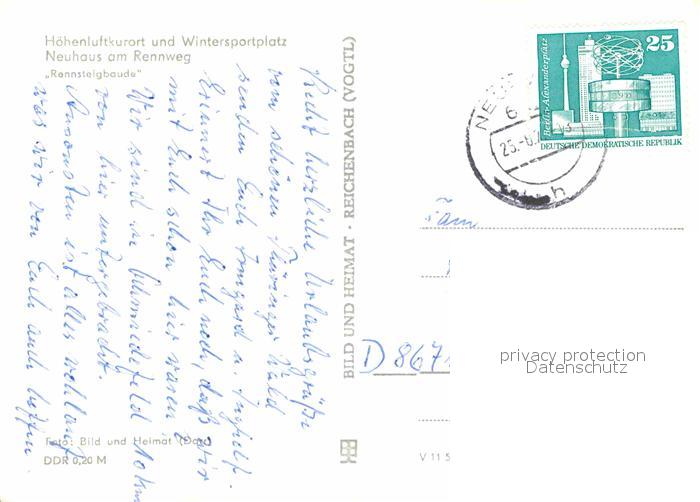 Höhenluftkurort und Wintersportplatz
Neuhaus am Rennweg
„Rennsteigbaude"
Recht herzliche Urlaubsgrüße
vom schönen Thüringer Wald
senden Euch Irmgard u.
Erinnert Ihr Euch noch, daß wir
mit Euch schon hier waren?
Wir sind in Schmiedefeld 10 km
von hier untergebracht.
Ansonsten ist alles wohlauf
was wir von Euch auch hoffen.
Foto: Bild und Heimat
DDR 0,20 M
BILD UND HEIMAT · REICHENBACH (VOGTL)
25
Berlin-Alexanderplatz
DEUTSCHE DEMOKRATISCHE REPUBLIK
Fam
D 867
privacy protection
Datenschutz
V 11 5